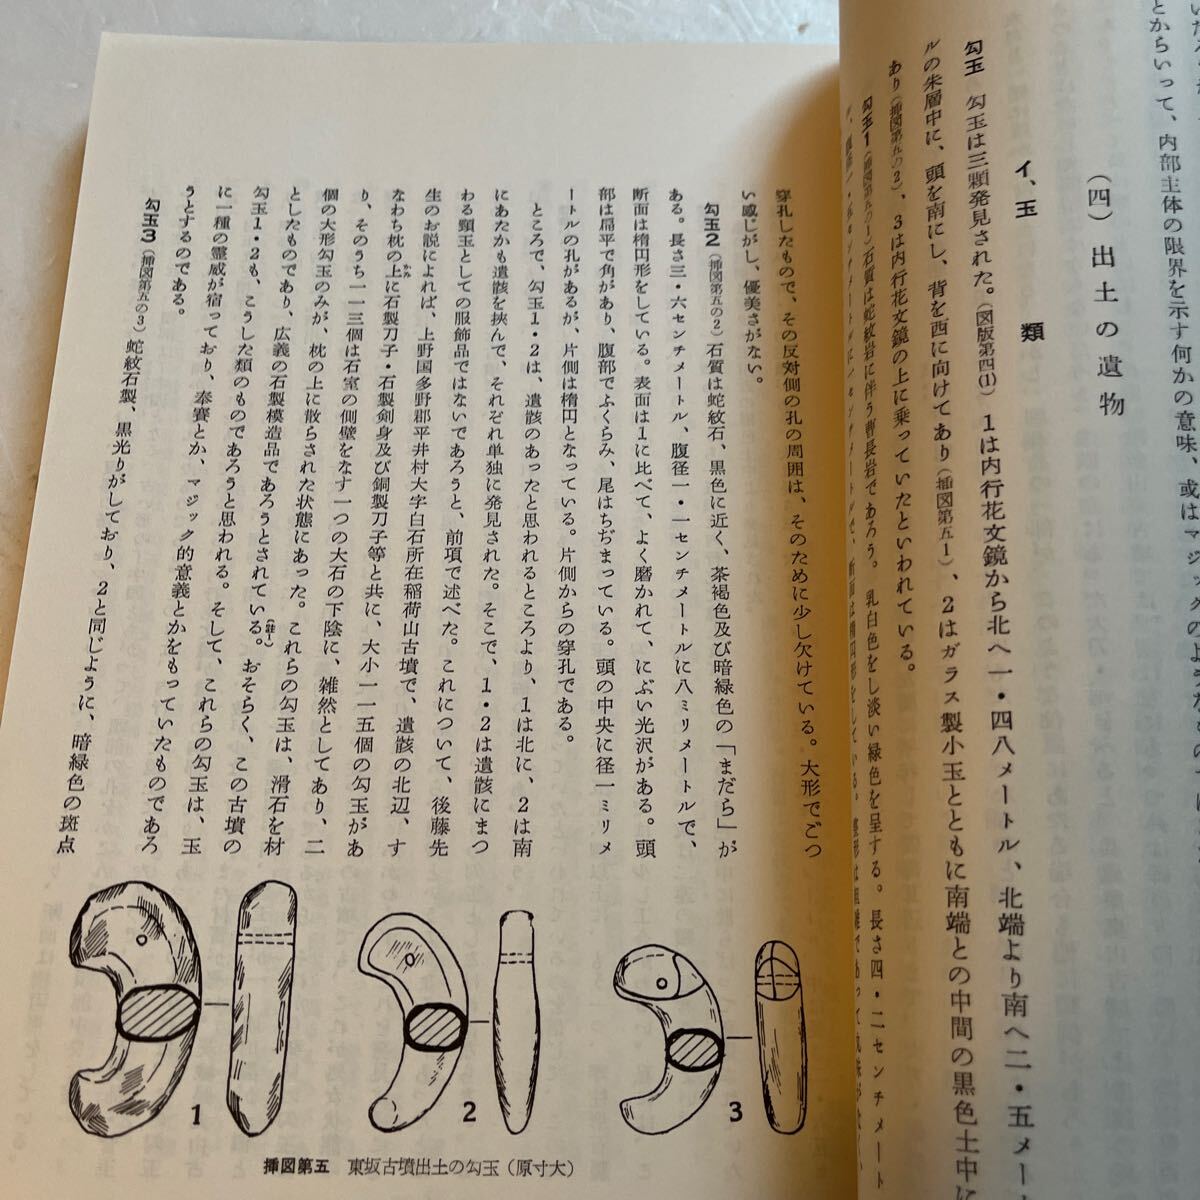 とからいって、内部主体の限界を示す何かの意味、或はマジックのような
(四) 出土の遺物
イ、玉類
勾玉 勾玉は三顆発見された。(図版第四(1)) 1は内行花文鏡から北へ一・四八メートル、北端より南へ二・五メー
ルの朱層中に、頭を南にし、背を西に向けてあり(挿図第五1)、2はガラス製小玉とともに南端との中間の黒色土中に
あり(挿図第五の2)、3は内行花文鏡の上に乗っていたといわれている。
勾玉1(挿図第五の1)石質は蛇紋岩に伴う曹長岩であろう。乳白色をし淡い緑色を呈する。長さ四・二センチメート
穿孔したもので、その反対側の孔の周囲は、そのために少し欠けている。大形でごつ
い感じがし、優美さがない。
勾玉2(挿図第五の2)石質は蛇紋石、黒色に近く、茶褐色及び暗緑色の「まだら」が
ある。長さ三・六センチメートル、腹径一・一センチメートルに八ミリメートルで、
断面は楕円形をしている。表面は1に比べて、よく磨かれて、にぶい光沢がある。頭
部は扁平で角があり、腹部でふくらみ、尾はちぢまっている。頭の中央に径一ミリメ
ートルの孔があるが、片側は楕円となっている。片側からの穿孔である。
ところで、勾玉1・2は、遺骸のあったと思われるところより、1は北に、2は南
にあたかも遺骸を挟んで、それぞれ単独に発見された。そこで、1・2は遺骸にまつ
わる頸玉としての服飾品ではないであろうと、前項で述べた。これについて、後藤先
生のお説によれば、上野国多野郡平井村大字白石所在稲荷山古墳で、遺骸の北辺、す
なわち枕の上に石製刀子・石製剣身及び銅製刀子等と共に、大小一一五個の勾玉があ
り、そのうち一一三個は石室の側壁をなす一つの大石の下陰に、雑然としてあり、二
個の大形勾玉のみが、枕の上に散らされた状態にあった。これらの勾玉は、滑石を材
としたものであり、広義の石製模造品であろうとされている。(註1)おそらく、この古墳の
勾玉1・2も、こうした類のものであろうと思われる。そして、これらの勾玉は、玉
に一種の霊威が宿っており、奉賽とか、マジック的意義とかをもっていたものであろ
うとするのである。
勾玉3(挿図第五の3)蛇紋石製、黒光りがしており、2と同じように、暗緑色の斑点
1
2
3
挿図第五 東坂古墳出土の勾玉(原寸大)